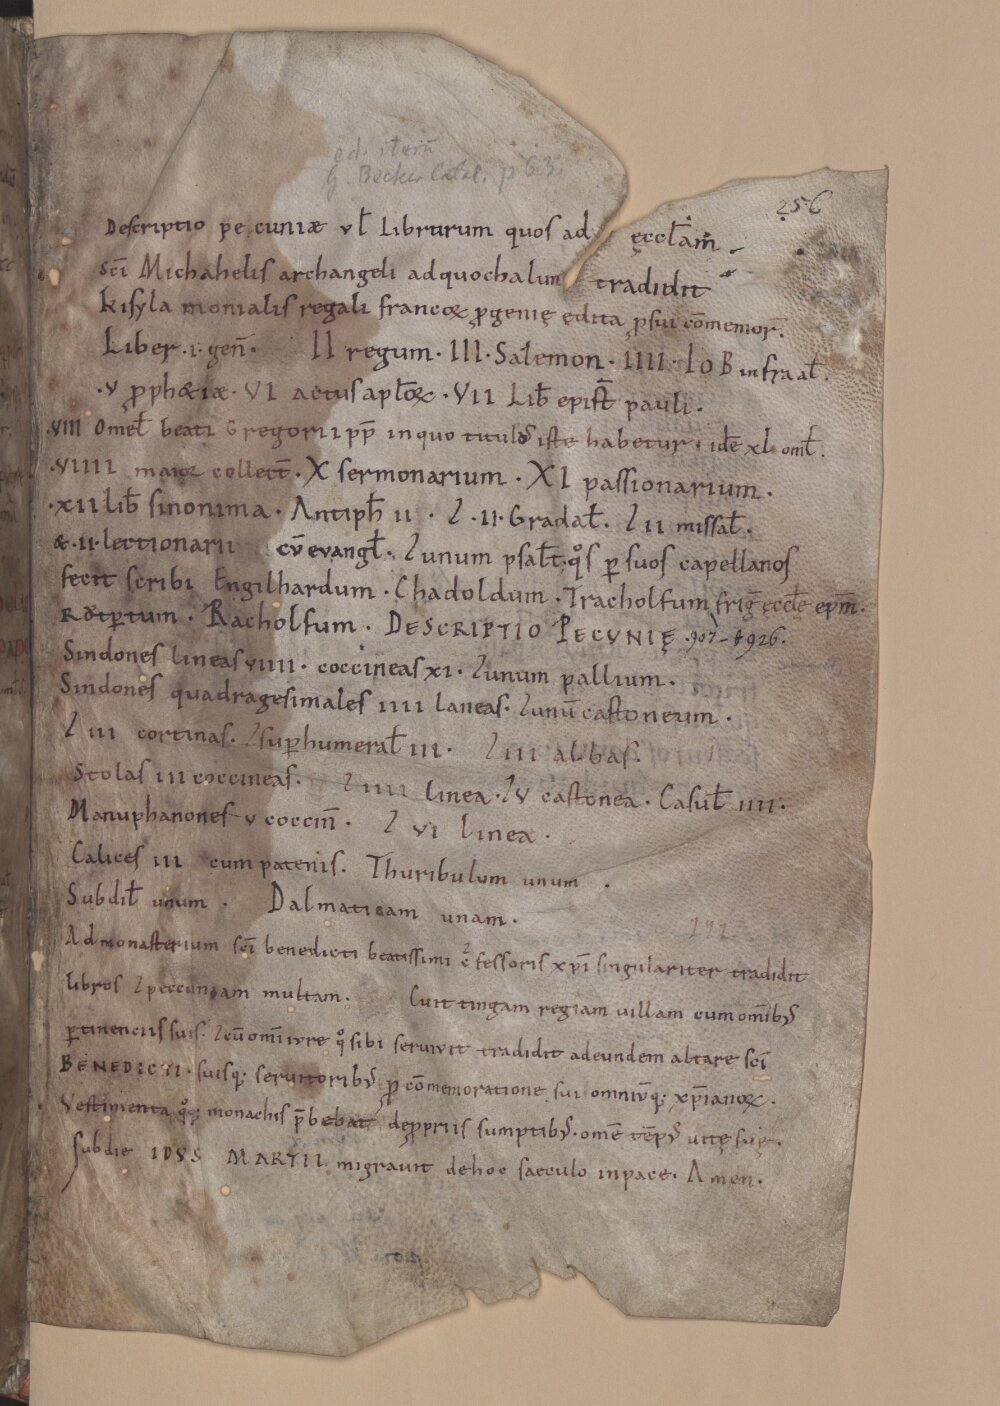 edi iterū
G. Becker Catal. p 63.
256
Descriptio pecuniæ vł Librorum quos ad ęccłam
sc̄i Michahelis archangeli ad quochalun tradidit
kisyla monialis regali francoꝝ ꝓgenię edita ꝓ sui cōmemor̄.
Liber · i · gen̄ · II regum · III · Salemon · IIII · IoB infra al̄ ·
· V ꝓphetiæ · VI actus apl̄oꝝ · VII Lib̄ epist̄ pauli ·
· VIII Omel̄ beati Gregorii pp̄ in quo titulꝰ iste habetur · idē xl oml̄ ·
· VIIII maioꝝ collect̄ · X sermonarium · XI passionarium ·
· XII Lib̄ sinonima · Antiph̄ II · ⁊ · II · Gradal̄ · ⁊ II missal̄ ·
& · II · lectionarii cū evangl̄ · ⁊ unum psalt̄ · qͦs ꝑ suos capellanos
fecit scribi Engilhardum · Chadoldum · Tracholfum friḡ ęccłe ep̄m ·
Ratꝑtum · Racholfum · DESCRIPTIO PECVNIĘ · 907 – † 926.
Sindones lineas VIIII · coccineas XI · ⁊ unum pallium ·
Sindones quadragesimales IIII laneas · ⁊ unū castoneum ·
⁊ III cortinas · ⁊ suꝑhumeral̄ III · ⁊ III albas ·
Stolas III coccineas · ⁊ IIII linea · ⁊ V castonea · Casul̄ IIII ·
Manuphanones V coccin̄ · ⁊ VI linea ·
Calices III cum patenis · Thuribulum unum ·
Subdil̄ unum · Dalmaticam unam ·
Ad monasterium sc̄i benedicti beatissimi ꝯfessoris xp̄i singulariter tradidit
libros ⁊ peccuniam multam · Cuit tingam regiam uillam cum om̄ibꝰ
ꝑtinenciis suis · ⁊ cū om̄i iure qͦ sibi seruivit tradidit ad eundem altare sc̄i
BENEDICTI · suisq; seruitoribꝰ ꝓ cōmemoratione sui omniūq; xp̄ianoꝝ ·
Vestimenta qͦq; monachis p̄bebat de ꝓpriis sumptibꝰ · omē tēpꝰ uitę suę ·
sub die IDVS MARTII migrauit de hoc saeculo in pace · Amen ·